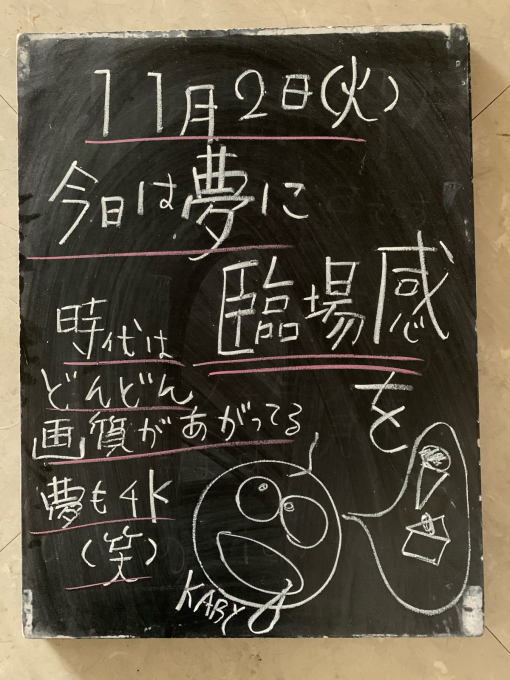 11月2日(火)
今日は夢に
臨場感
を
時代は
どんどん
画質があがってる
夢も4K
(笑)
KABY